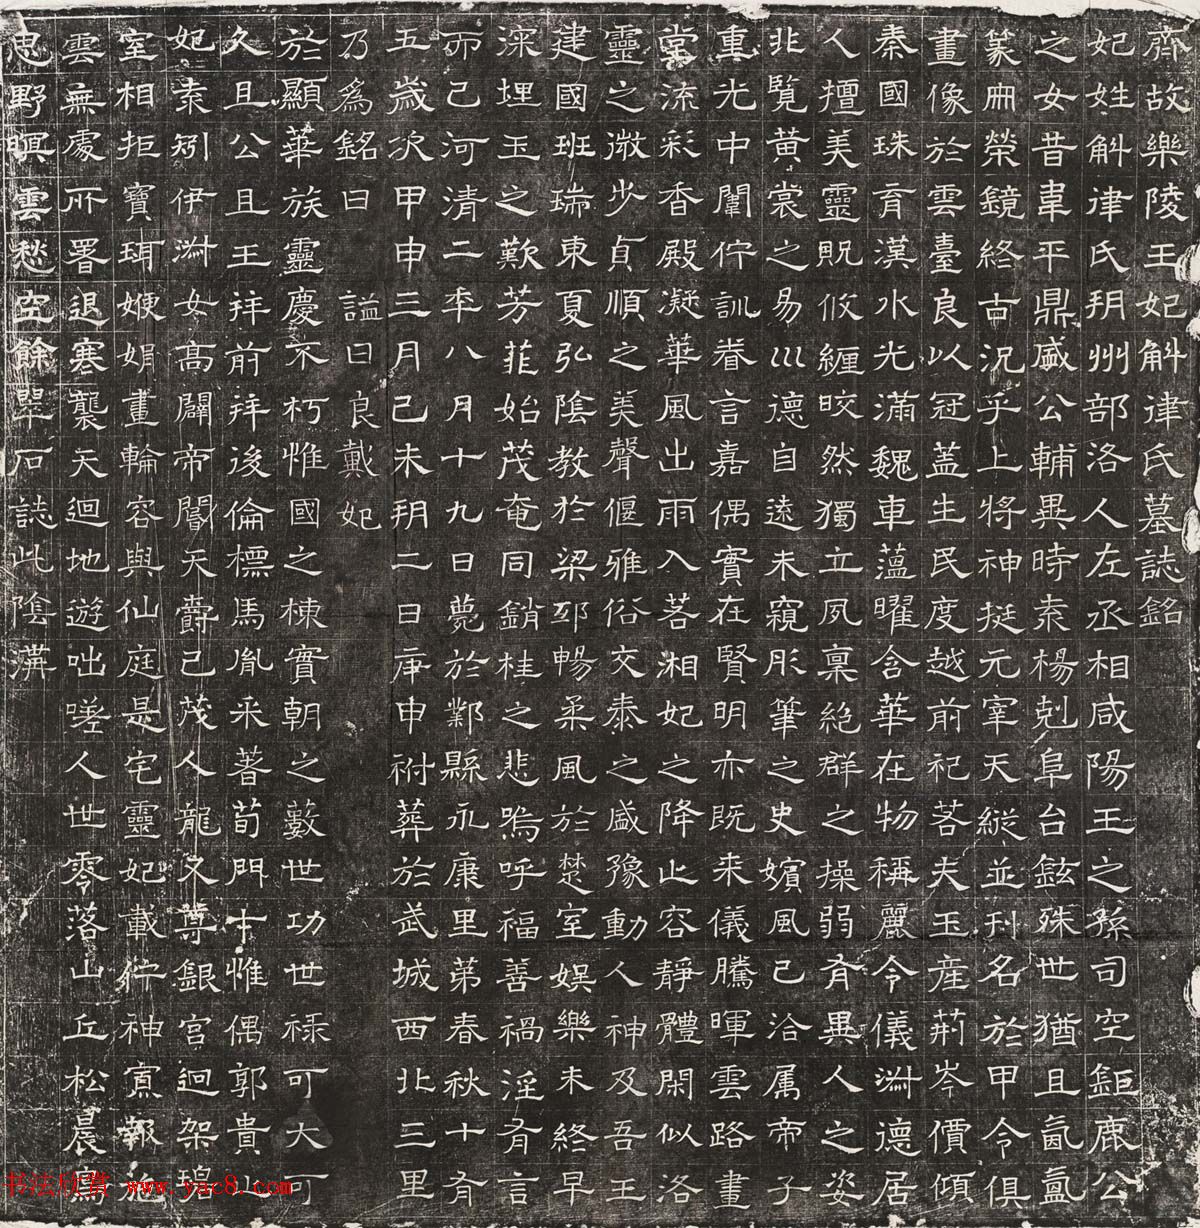 齊故樂陵王妃斛律氏墓誌銘
妃姓斛律氏朔州部洛人左丞相咸陽王之孫司空鉅鹿公
之女昔韋平鼎盛公輔異時素楊剋阜台鉉殊世猶且氤氳
篆冊縈鏡終古況乎上將神挺元宰天縱並刊名於甲令俱
畫像於雲臺良以冠蓋生民度越前祀若夫玉產荊岑價傾
秦國珠育漢水光滿魏車蘊曜含華在物稱麗令儀淋德居
人擅美靈貺攸纏晈然獨立夙稟絕群之操弱有異人之姿
非覽黃裳之易巛德自遠未窺彤筆之史嬪風已洽属帝子
重光中闈佇訓眷言嘉偶實在賢明亦既来儀騰暉雲路畫
堂流彩香殿凝華風出雨入若湘妃之降止容靜體閑似洛
靈之微步貞順之美聲偃雅俗交泰之盛豫動人神及吾王
建國班瑞東夏弘陰教於梁邳暢柔風於楚室娛樂未終早
深埋玉之歎芳菲始茂奄同銷桂之悲嗚呼福善禍淫有言
而已河清二年八月十九日薨於鄴縣永康里第春秋十有
五歲次甲申三月己未朔二日庚申祔葬於武城西北三里
乃為銘曰 謚曰良戴妃
於顯華族靈慶不朽惟國之棟實朝之藪世功世祿可大可
久且公且王拜前拜後倫標馬胤采著荀門才惟偶郭貴
妃袁矧伊淋女高闢帝閽天爵已茂人龍又尊銀宮迥架
室相拒寶珥嬔娟畫輪容與仙庭是宅靈妃載佇神寘報
雲無處所署退寒襲天迴地遊咄嗟人世零落山丘松晨
思野暝雲愁空餘翠石誌此陰溝
书法欣赏 www.yac8.com